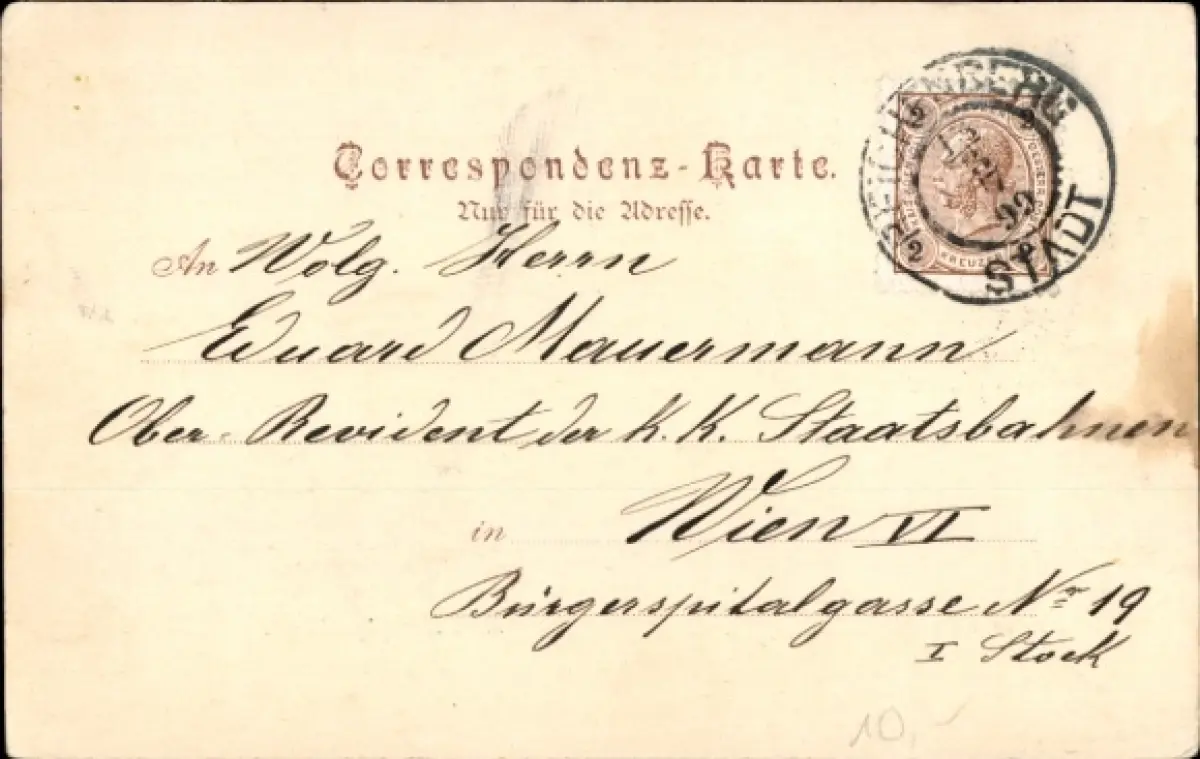 Correspondenz-Karte.
Nur für die Adresse.
An Wolg. Herrn
Eduard Mauermann
Ober-Revident der K. K. Staatsbahnen
in Wien VI
Bürgerspitalgasse Nr 19
I Stock
REICHENBERG
STADT
99
2 2
2
KREUZER
10,-